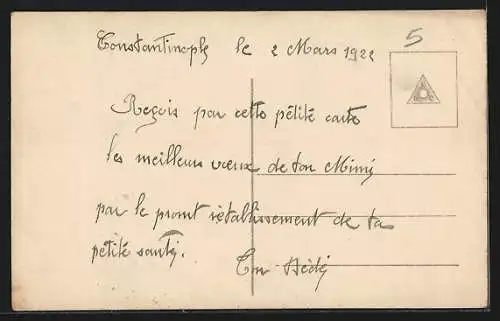 Constantinople le 2 Mars 1922
5
Reçois par cette pétite carte
les meilleurs vœux de ton Mimi
par le promt rétablissement de ta
pétite santé.
Ton Dédé